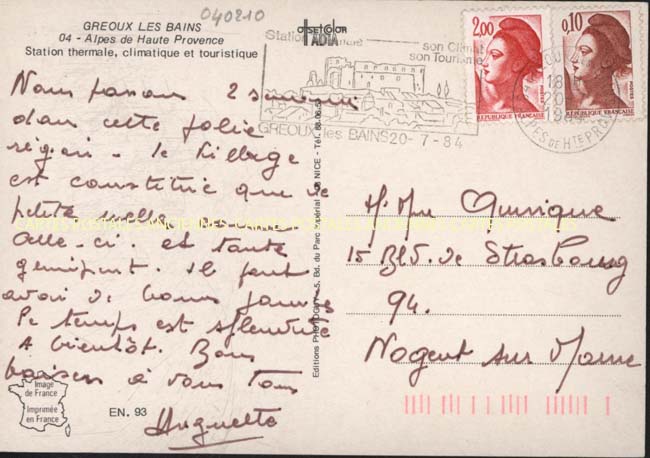 040210
GREOUX LES BAINS
04 - Alpes de Haute Provence
Station thermale, climatique et touristique
Nous passons 2 semaines
dans cette jolie
région. le village
est constitué que de
petites ruelles
et toute
Il faut
avoir de bonnes jambes
Le temps est splendide
A bientôt. Bons
baisers à vous tous
Huguette
Image
de France
Imprimée
en France
EN. 93
Editions PHOTOGUY - 5, Bd. du Parc Impérial - NICE - Tél. 88.06.5
offsetcolor
ADIA
Station
son Climat
son Tourisme
GREOUX les BAINS 20 - 7 - 84
2,00
POSTES
REPUBLIQUE FRANCAISE
0,10
POSTES
REPUBLIQUE FRANCAISE
18
20
1984
ALPES DE HTE PROV
M. Mme
15 Bld. de Strasbourg
94.
Nogent sur Marne
CARTES POSTALES ANCIENNES CARTES POSTALES ANCIENNES